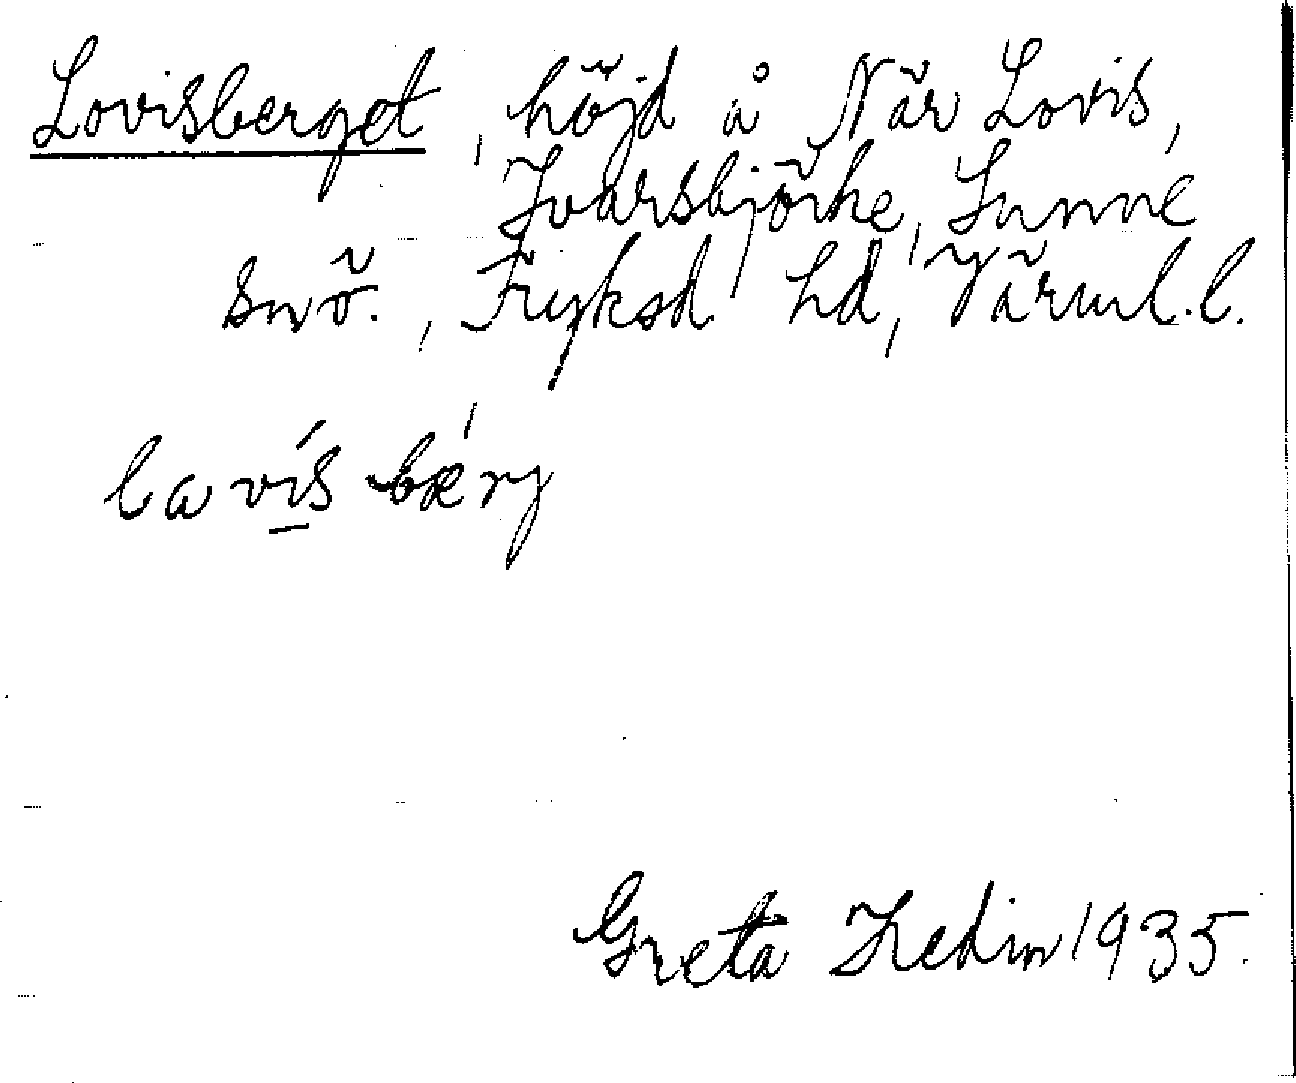 Lovisberget, höjd å När Lovis,
Ivarsbjörke, Sunne
snö., Fryksd. hd, Värml.l.
lavís bǽrj
Greta Hedin 1935.